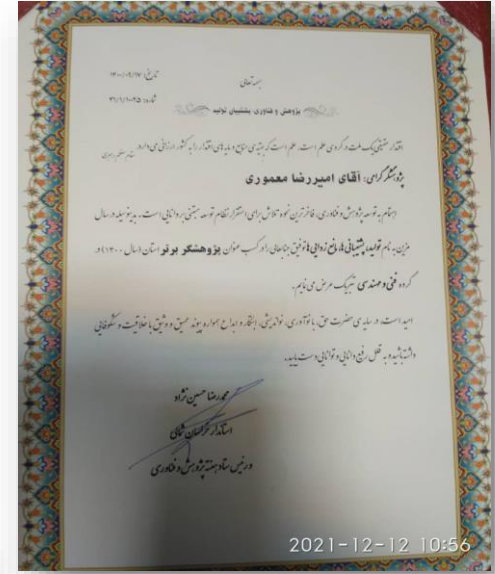 بسمه تعالی
تاریخ: ۱۴۰۰/۰۹/۱۷
پژوهش و فناوری، پشتیبان تولید
اقتدار حقیقی یک ملت در گرو علم است، علم است که بقیه‌ی منابع و مایه‌های اقتدار را به کشور ارزانی می‌دارد. مقام معظم رهبری
پژوهشگر گرامی: آقای امیررضا معموری
اهتمام به توسعه پژوهش و فناوری، فاخرترین نمود تلاش برای استقرار نظام توسعه مبتنی بر دانایی است. بدینوسیله در سال
مزین به نام تولید، پشتیبانی ها، مانع زدایی ها توفیق جنابعالی را در کسب عنوان پژوهشگر برتر استان (سال ۱۴۰۰) در
گروه فنی و مهندسی تبریک عرض می نمایم.
امید است، در سایه ی حضرت حق، با نوآوری، نواندیشی، ابتکار و ابداع همواره پیوند عمیق و وثیق با خلاقیت و شکوفایی
داشته باشید و به قلل رفیع دانایی و توانایی دست یابید.
محمدرضا حسین نژاد
استاندار خراسان شمالی
و رئیس ستاد هفته پژوهش و فناوری
2021-12-12 10:56